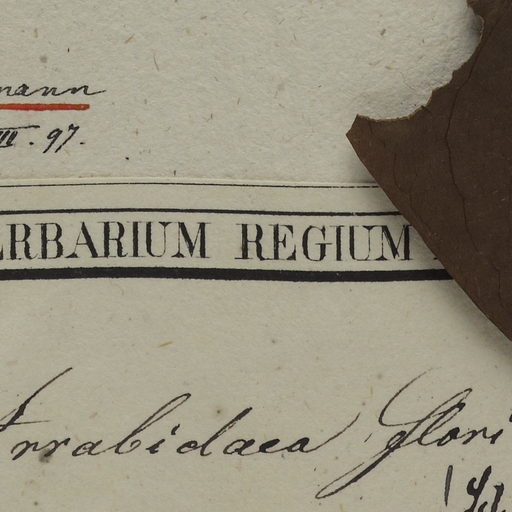 mann
III. 97.
ERBARIUM REGIUM
Arrabidaea flori